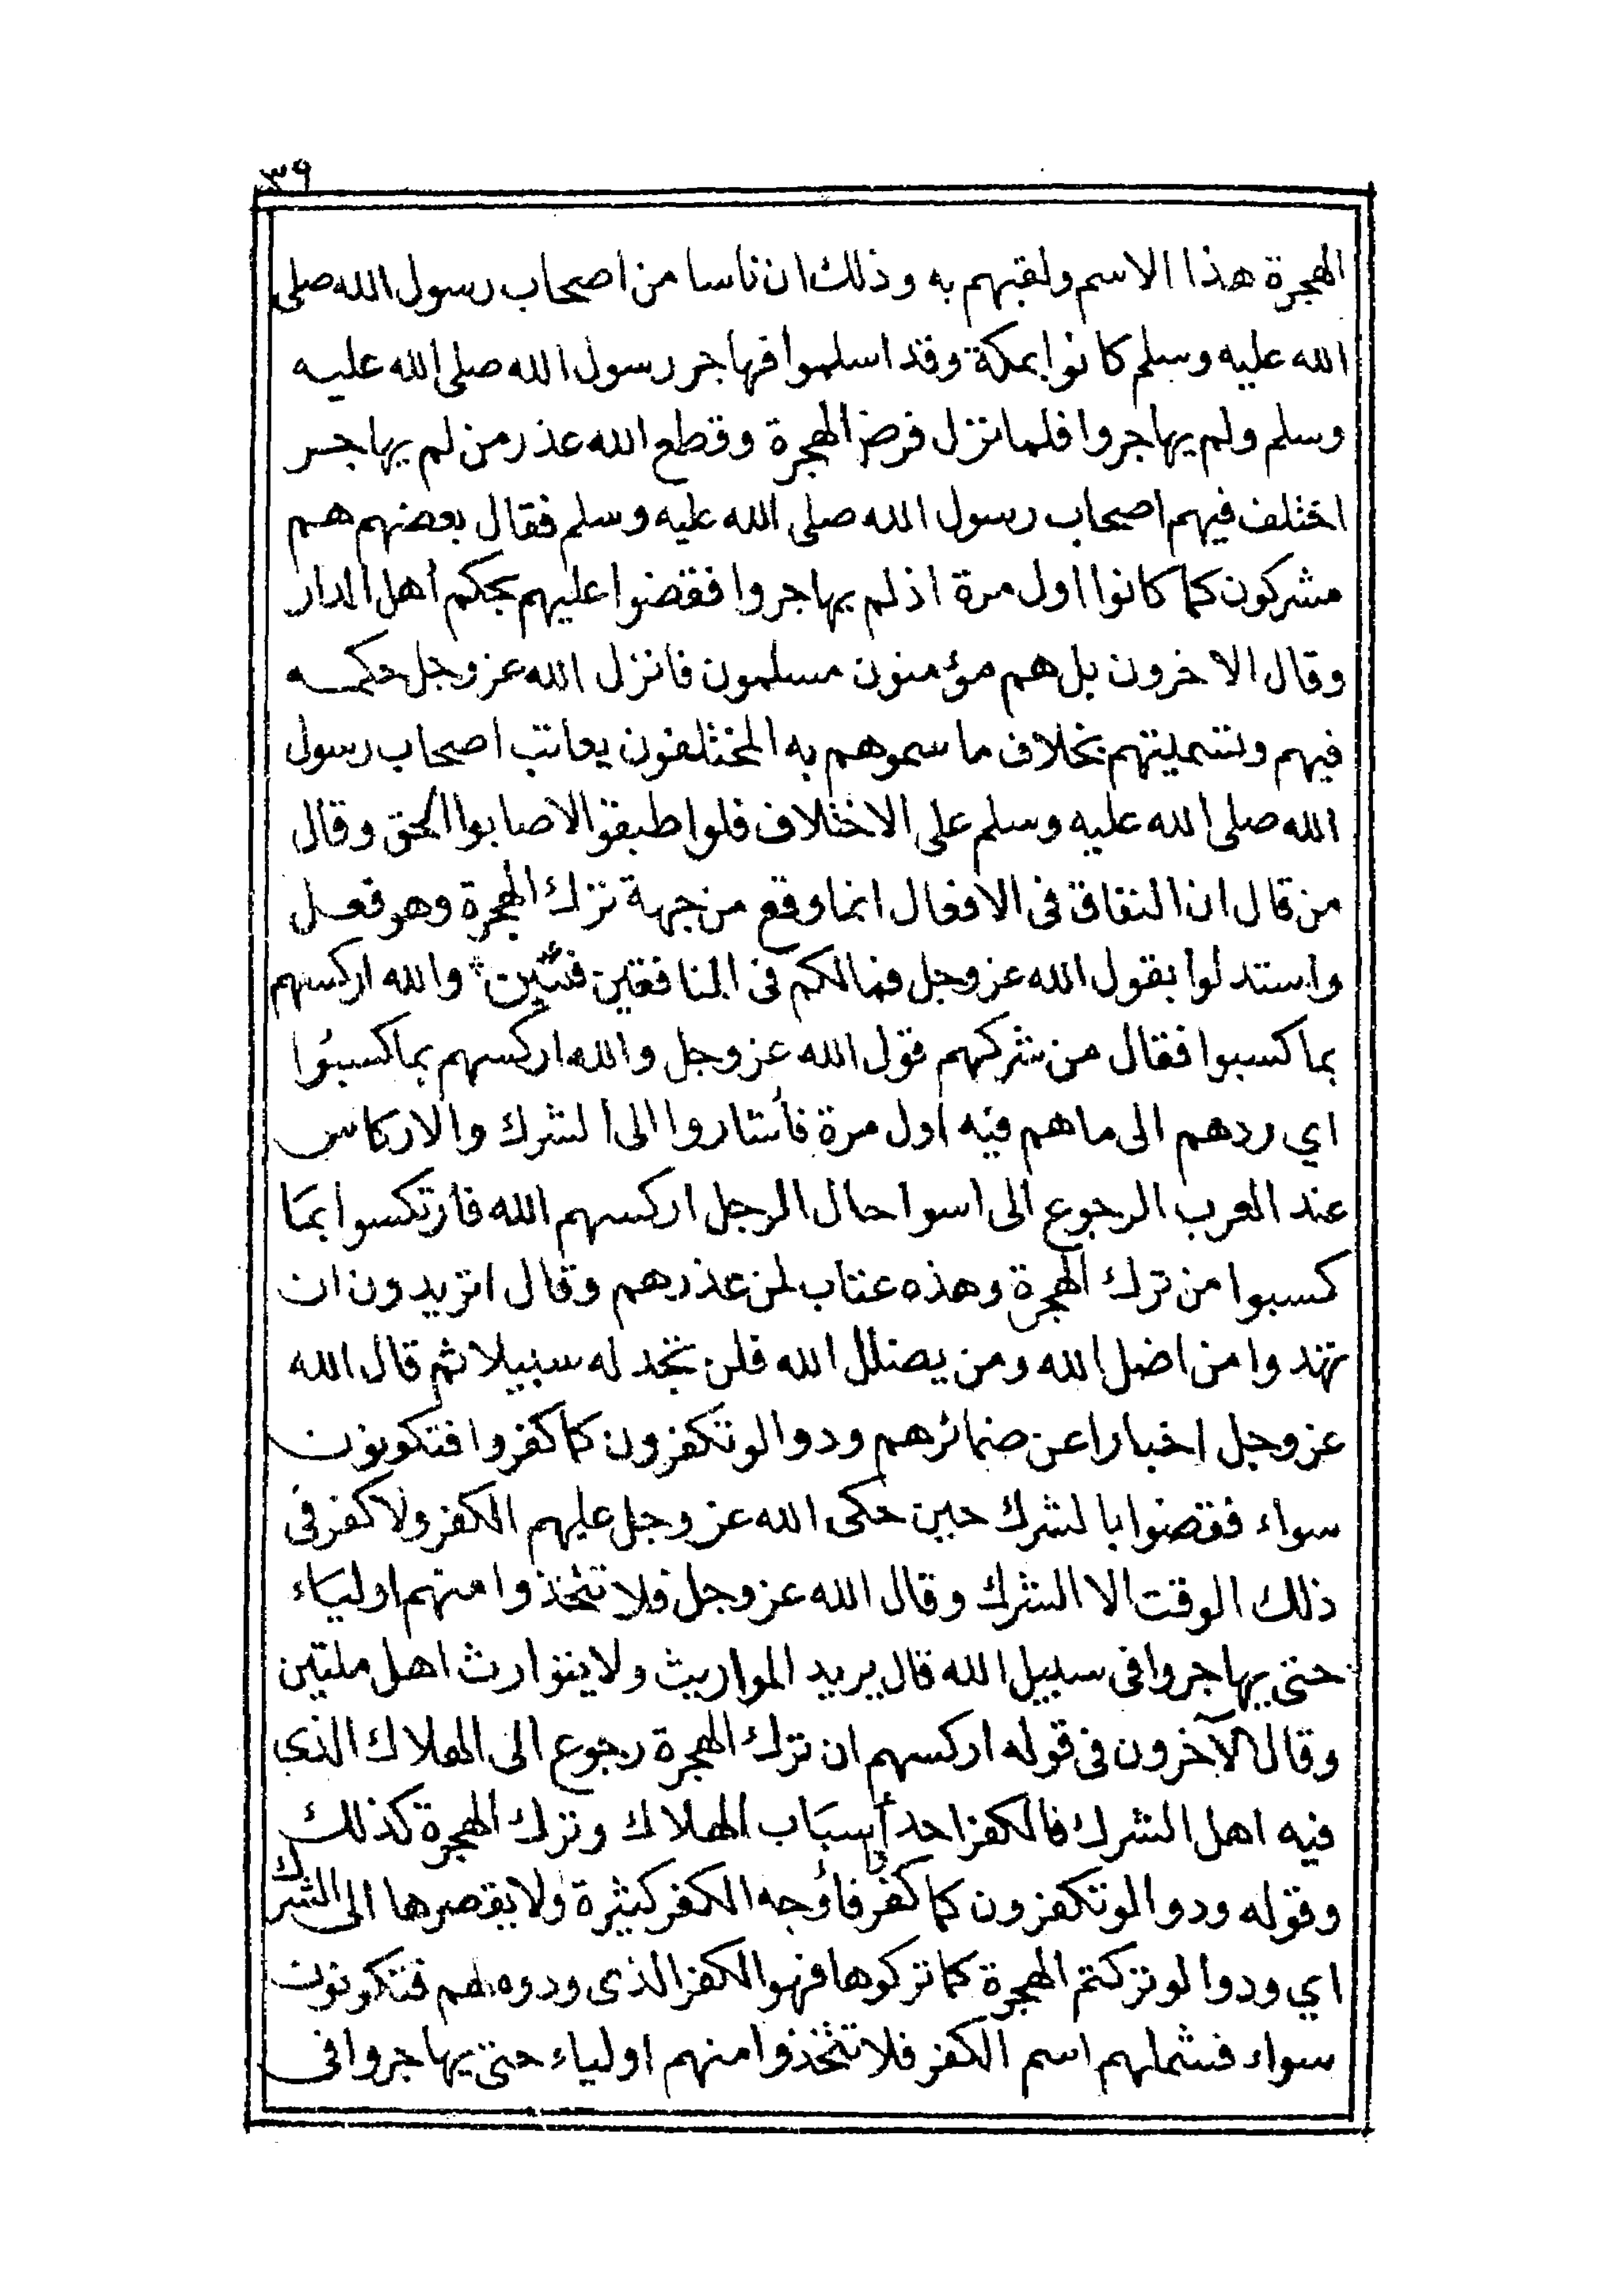 ٣٩
الهجرة هذا الاسم ولقبهم به وذلك ان ناسا من اصحاب رسول الله صلى
الله عليه وسلم كانوا بمكة وقد اسلموا فهاجر رسول الله صلى الله عليه
وسلم ولم يهاجروا فلما نزل فرض الهجرة وقطع الله عذر من لم يهاجر
اختلف فيهم اصحاب رسول الله صلى الله عليه وسلم فقال بعضهم هم
مشركون كما كانوا اول مرة اذ لم يهاجروا فقضوا عليهم بحكم أهل الدار
وقال الاخرون بل هم مؤمنون مسلمون فانزل الله عز وجل حكمه
فيهم وتسميتهم بخلاف ما سموهم به المختلفون يعاتب اصحاب رسول
الله صلى الله عليه وسلم على الاختلاف فلو اطبقوا لاصابوا الحق وقال
من قال ان النفاق فى الافعال انما وقع من جهة ترك الهجرة وهو فعل
واستدلوا بقول الله عز وجل فما لكم فى المنافقين فئتين والله اركسهم
بما كسبوا فقال من شركهم قول الله عز وجل والله اركسهم بما كسبوا
اي ردهم الى ما هم فيه اول مرة فأشاروا الى الشرك والاركاس
عند العرب الرجوع الى اسوا حال الرجل اركسهم الله فارتكسوا بما
كسبوا من ترك الهجرة وهذه عتاب لمن عذرهم وقال اتريدون ان
تهدوا من اضل الله ومن يضلل الله فلن تجد له سبيلا ثم قال الله
عز وجل اخبارا عن ضمائرهم ودوا لو تكفرون كما كفروا فتكونون
سواء فقضوا بالشرك حين حكى الله عز وجل عليهم الكفر ولا كفر فى
ذلك الوقت الا الشرك وقال الله عز وجل فلا تتخذوا منهم اولياء
حتى يهاجروا فى سبيل الله قال يريد المواريث ولا يتوارث اهل ملتين
وقال الآخرون فى قوله اركسهم ان ترك الهجرة رجوع الى الهلاك الذى
فيه اهل الشرك فالكفر احد أسباب الهلاك وترك الهجرة كذلك
وقوله ودوا لو تكفرون كما كفروا فأوجه الكفر كثيرة ولا يقصرها الى الشرك
اي ودوا لو تركتم الهجرة كما تركوها فهو الكفر الذى ودوه لهم فتكونون
سواء فشملهم اسم الكفر فلا تتخذوا منهم اولياء حتى يهاجروا فى